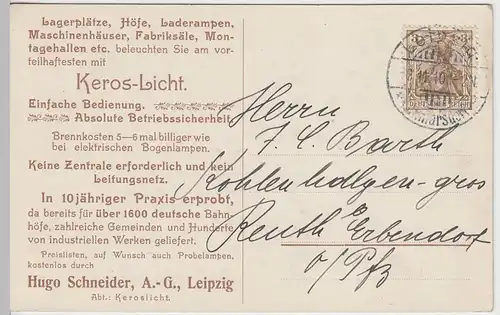 Lagerplätze, Höfe, Laderampen,
Maschinenhäuser, Fabriksäle, Mon-
tagehallen etc. beleuchten Sie am vor-
teilhaftesten mit
Keros-Licht.
Einfache Bedienung.
Absolute Betriebssicherheit
Brennkosten 5—6 mal billiger wie
bei elektrischen Bogenlampen.
Keine Zentrale erforderlich und kein
Leitungsnetz.
In 10 jähriger Praxis erprobt,
da bereits für über 1600 deutsche Bahn-
höfe, zahlreiche Gemeinden und Hunderte
von industriellen Werken geliefert.
Preislisten, auf Wunsch auch Probelampen,
kostenlos durch
Hugo Schneider, A.-G., Leipzig
Abt.: Keroslicht.
Herrn
J. C. Barth
Reuth Erbendorf
o/Pfz